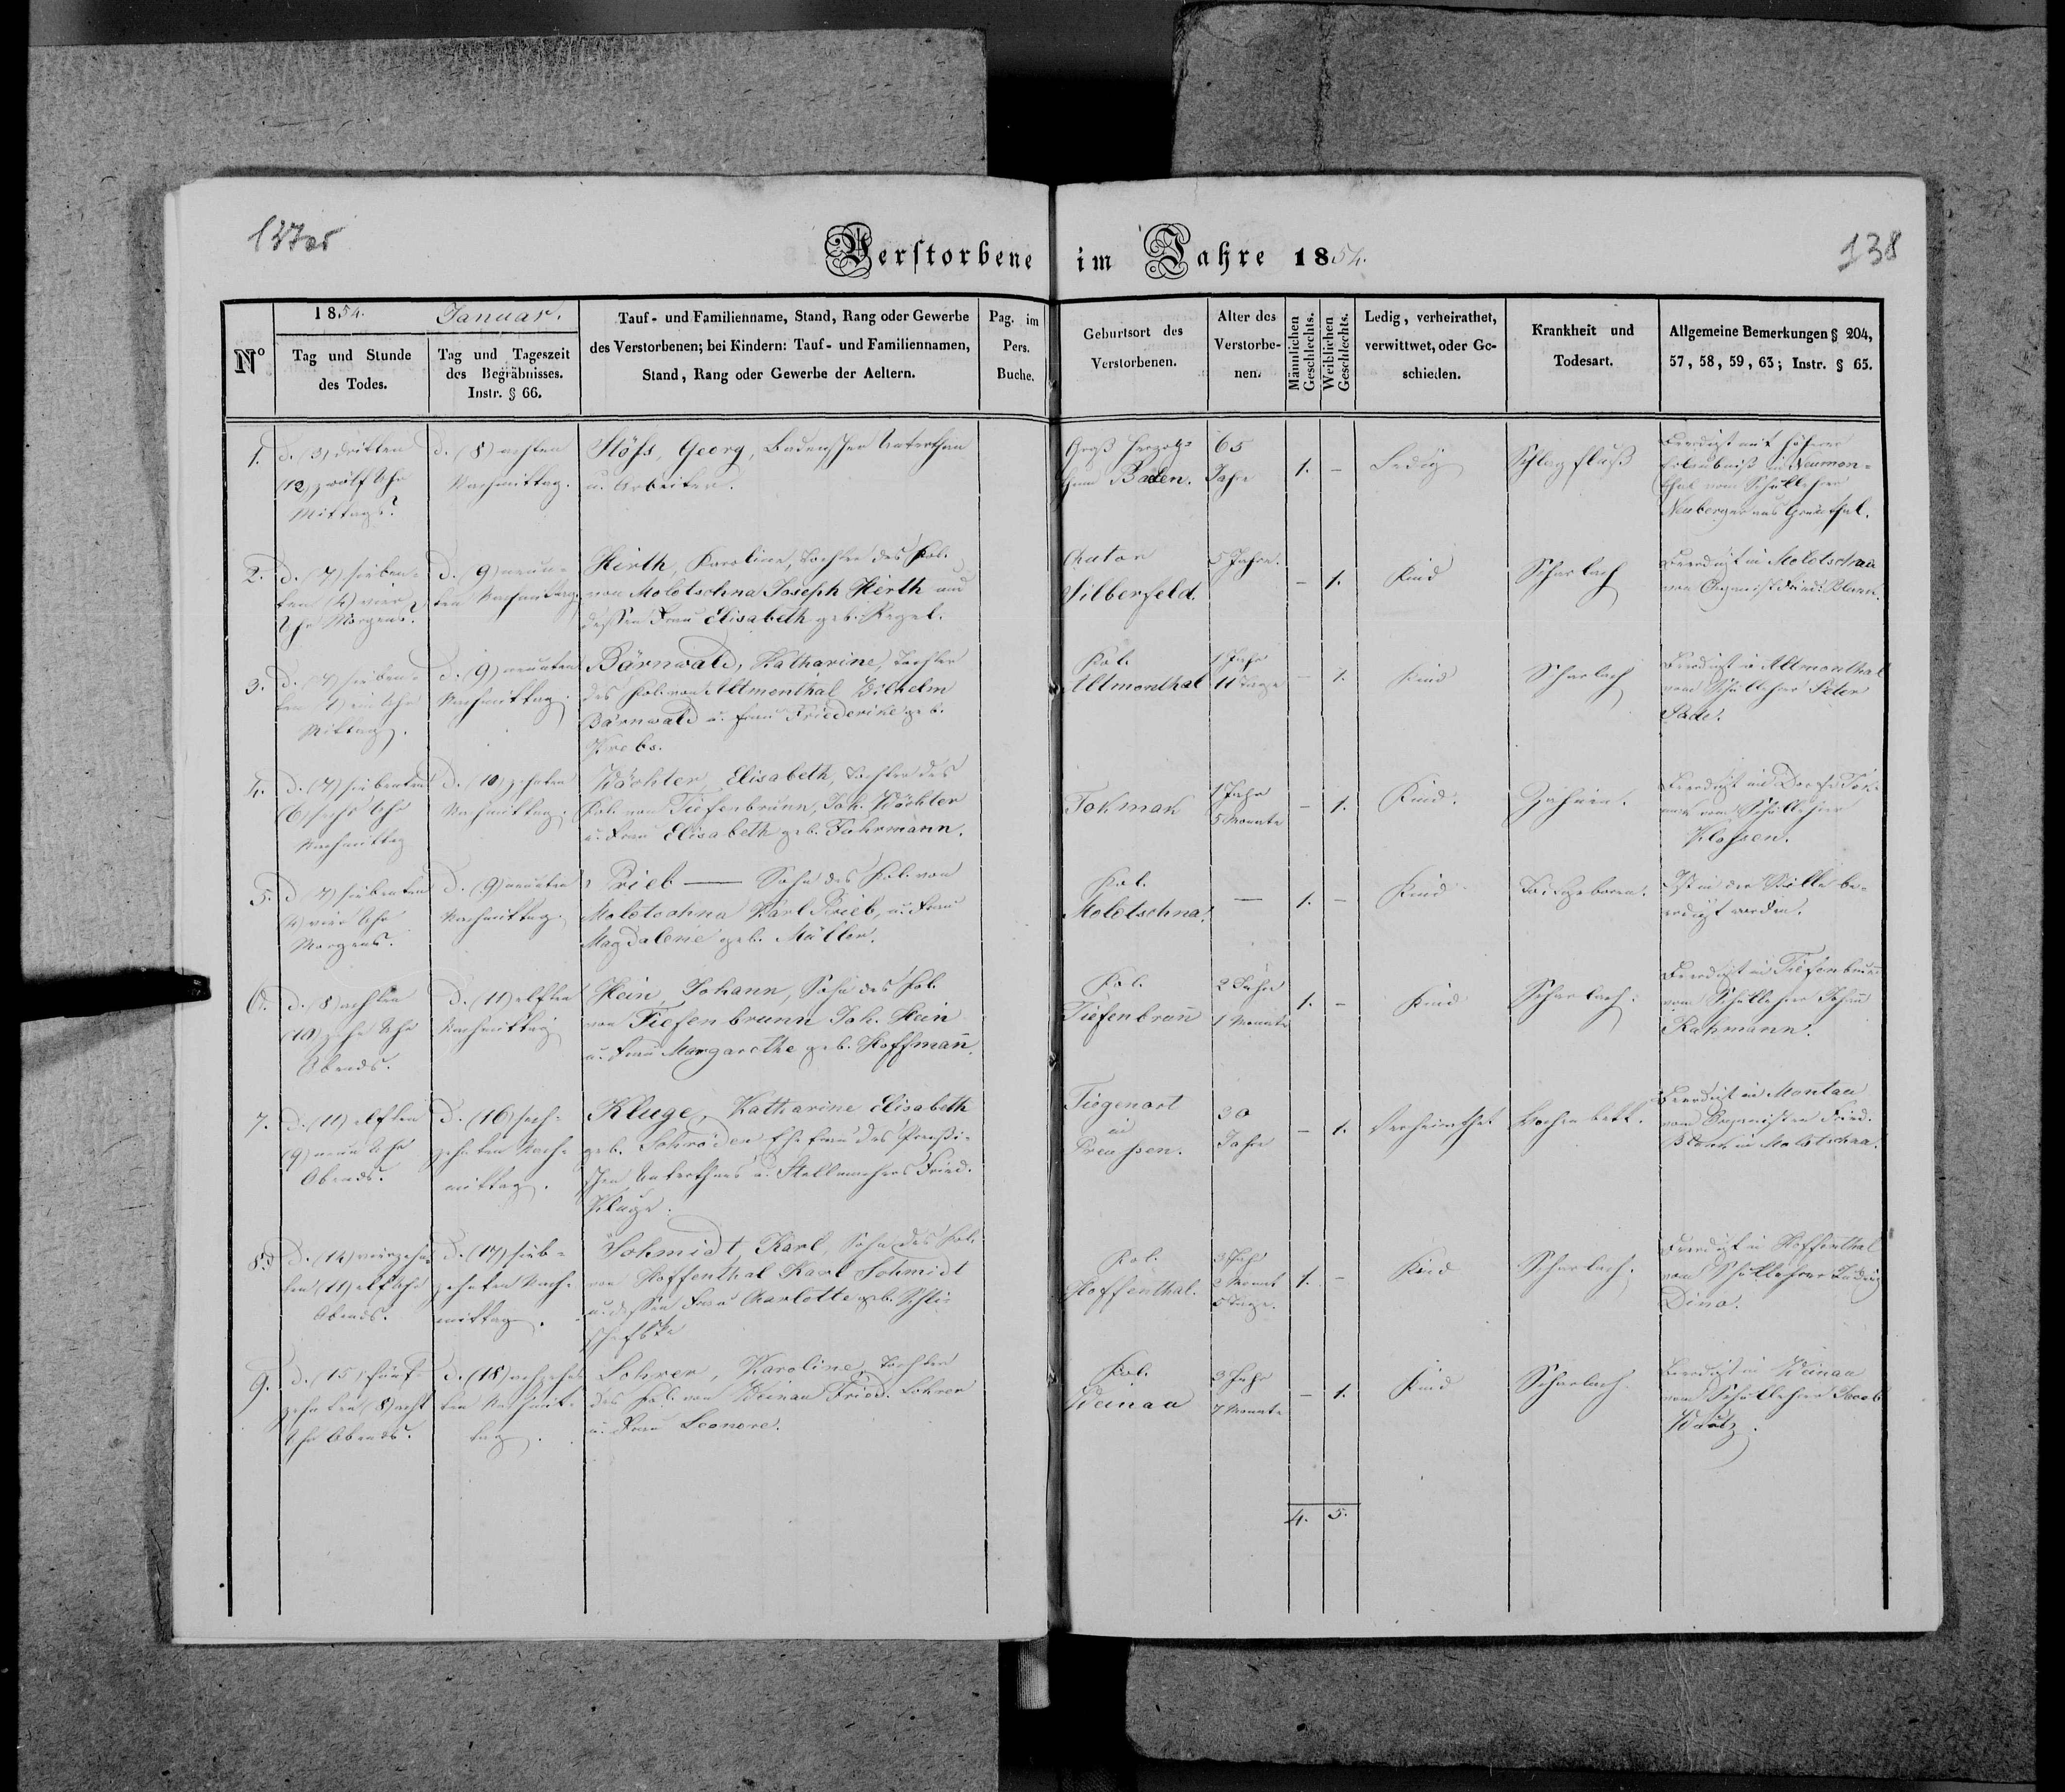 137os
138
Verstorbene im Jahre 1854.
N°
1854. Januar.
Tag und Stunde
des Todes.
Tag und Tageszeit
des Begräbnisses.
Instr. § 66.
Tauf- und Familienname, Stand, Rang oder Gewerbe
des Verstorbenen; bei Kindern: Tauf- und Familiennamen,
Stand, Rang oder Gewerbe der Aeltern.
Pag. im
Pers.
Buche.
Geburtsort des
Verstorbenen.
Alter des
Verstorbe-
nen.
Männlichen
Geschlechts.
Weiblichen
Geschlechts.
Ledig, verheirathet,
verwittwet, oder Ge-
schieden.
Krankheit und
Todesart.
Allgemeine Bemerkungen § 204,
57, 58, 59, 63; Instr. § 65.
1.
d. (3) dritten
(12) zwölf Uhr
Mittags.
d. (8) achten
Nachmittag.
Stöhs, Georg, Badenscher Unterthan
u. Arbeiter.
Groß Herzogs-
thum Baden.
65
Jahre
1.
–
Ledig
Schlagfluß
Beerdigt mit höherer
Erlaubniß in Neumon-
thal vom Schullehrer
Neuberger aus Grünthal.
2.
d. (7) sieben-
ten (4) vier
Uhr Morgens.
d. (9) neun-
ten Nachmittag.
Hirth, Karoline, Tochter des Kol.
von Molotschna Joseph Hirth und
dessen Frau Elisabeth geb. Kegel.
Chutor
Silberfeld.
5 Jahre.
–
1.
Kind
Scharlach
Beerdigt in Molotschna
von Organist Fried.
3.
d. (7) sieben-
ten (1) ein Uhr
Mittag.
d. (9) neunten
Nachmittag.
Bärnwald, Katharine, Tochter
des Kol. von Altmonthal Wilhelm
Bärnwald u. Frau Friederike geb.
Krebs.
Kol.
Altmonthal
1 Jahr
11 Tage
–
1.
Kind
Scharlach
Beerdigt in Altmonthal
vom Schullehrer Peter
4.
d. (7) siebenten
(6) sechs Uhr
Nachmittag
d. (10) zehnten
Nachmittag.
Wächter, Elisabeth, Tochter des
Kol. von Tiefenbrunn, Joh. Wächter
u. Frau Elisabeth geb. Fuhrmann.
Tokmak
1 Jahr
5 Monate
–
1.
Kind.
Zahnen.
Beerdigt im Dorfe Tok-
mak vom Schullehrer
Klassen.
5.
d. (7) siebenten
(4) vier Uhr
Morgens.
d. (9) neunten
Nachmittag.
Prieb — Sohn des Kol. von
Molotschna Karl Prieb, u. Frau
Magdalene geb. Müller.
Kol.
Molotschna.
—
1.
–
Kind
Todtgeboren.
Ist in der Stille be-
erdigt worden.
6.
d. (8) achten
(10) zehn Uhr
Abends.
d. (11) elften
Nachmittag
Hein, Johann, Sohn des Kol.
von Tiefenbrunn Joh. Hein
u. Frau Margarethe geb. Hoffmann.
Kol.
Tiefenbrunn
2 Jahre
1 Monate
1.
–
Kind
Scharlach.
Beerdigt in Tiefenbrunn
vom Schullehrer Johann
7.
d. (11) elften
(9) neun Uhr
Abends.
d. (16) sech-
zehnten Nach-
mittag.
Kluge, Katharine Elisabeth
geb. Schröder Ehefrau des Preußi-
schen Unterthans u. Stellmachers Fried.
Kluge.
Tiegenort
in
Preussen.
30
Jahre
–
1.
Verheirathet
Wochenbett.
Beerdigt in Montau
vom Organisten Fried.
in Molotschna.
8.
d. (14) vierzehn-
ten (11) elf Uhr
Abends.
d. (17) sieb-
zehnten Nach-
mittag.
Schmidt, Karl, Sohn des Kol.
von Hoffenthal Karl Schmidt
u. dessen Frau Charlotte geb.
Kol.
Hoffenthal.
3 Jahr
2 Monat
5 Tage.
1.
–
Kind
Scharlach.
Beerdigt in Hoffenthal
vom Schullehrer Ludwig
9.
d. (15) fünf-
zehnten (8) acht
Uhr Abends.
d. (18) achtzehn-
ten Nachmit-
tag.
Lohrer, Karoline, Tochter
des Kol. von Weinau Fried. Lohrer
u. Frau Leonore.
Kol.
Weinau
3 Jahr
7 Monate
–
1.
Kind
Scharlach.
Beerdigt in Weinau
vom Schullehrer Jacob
4. 5.